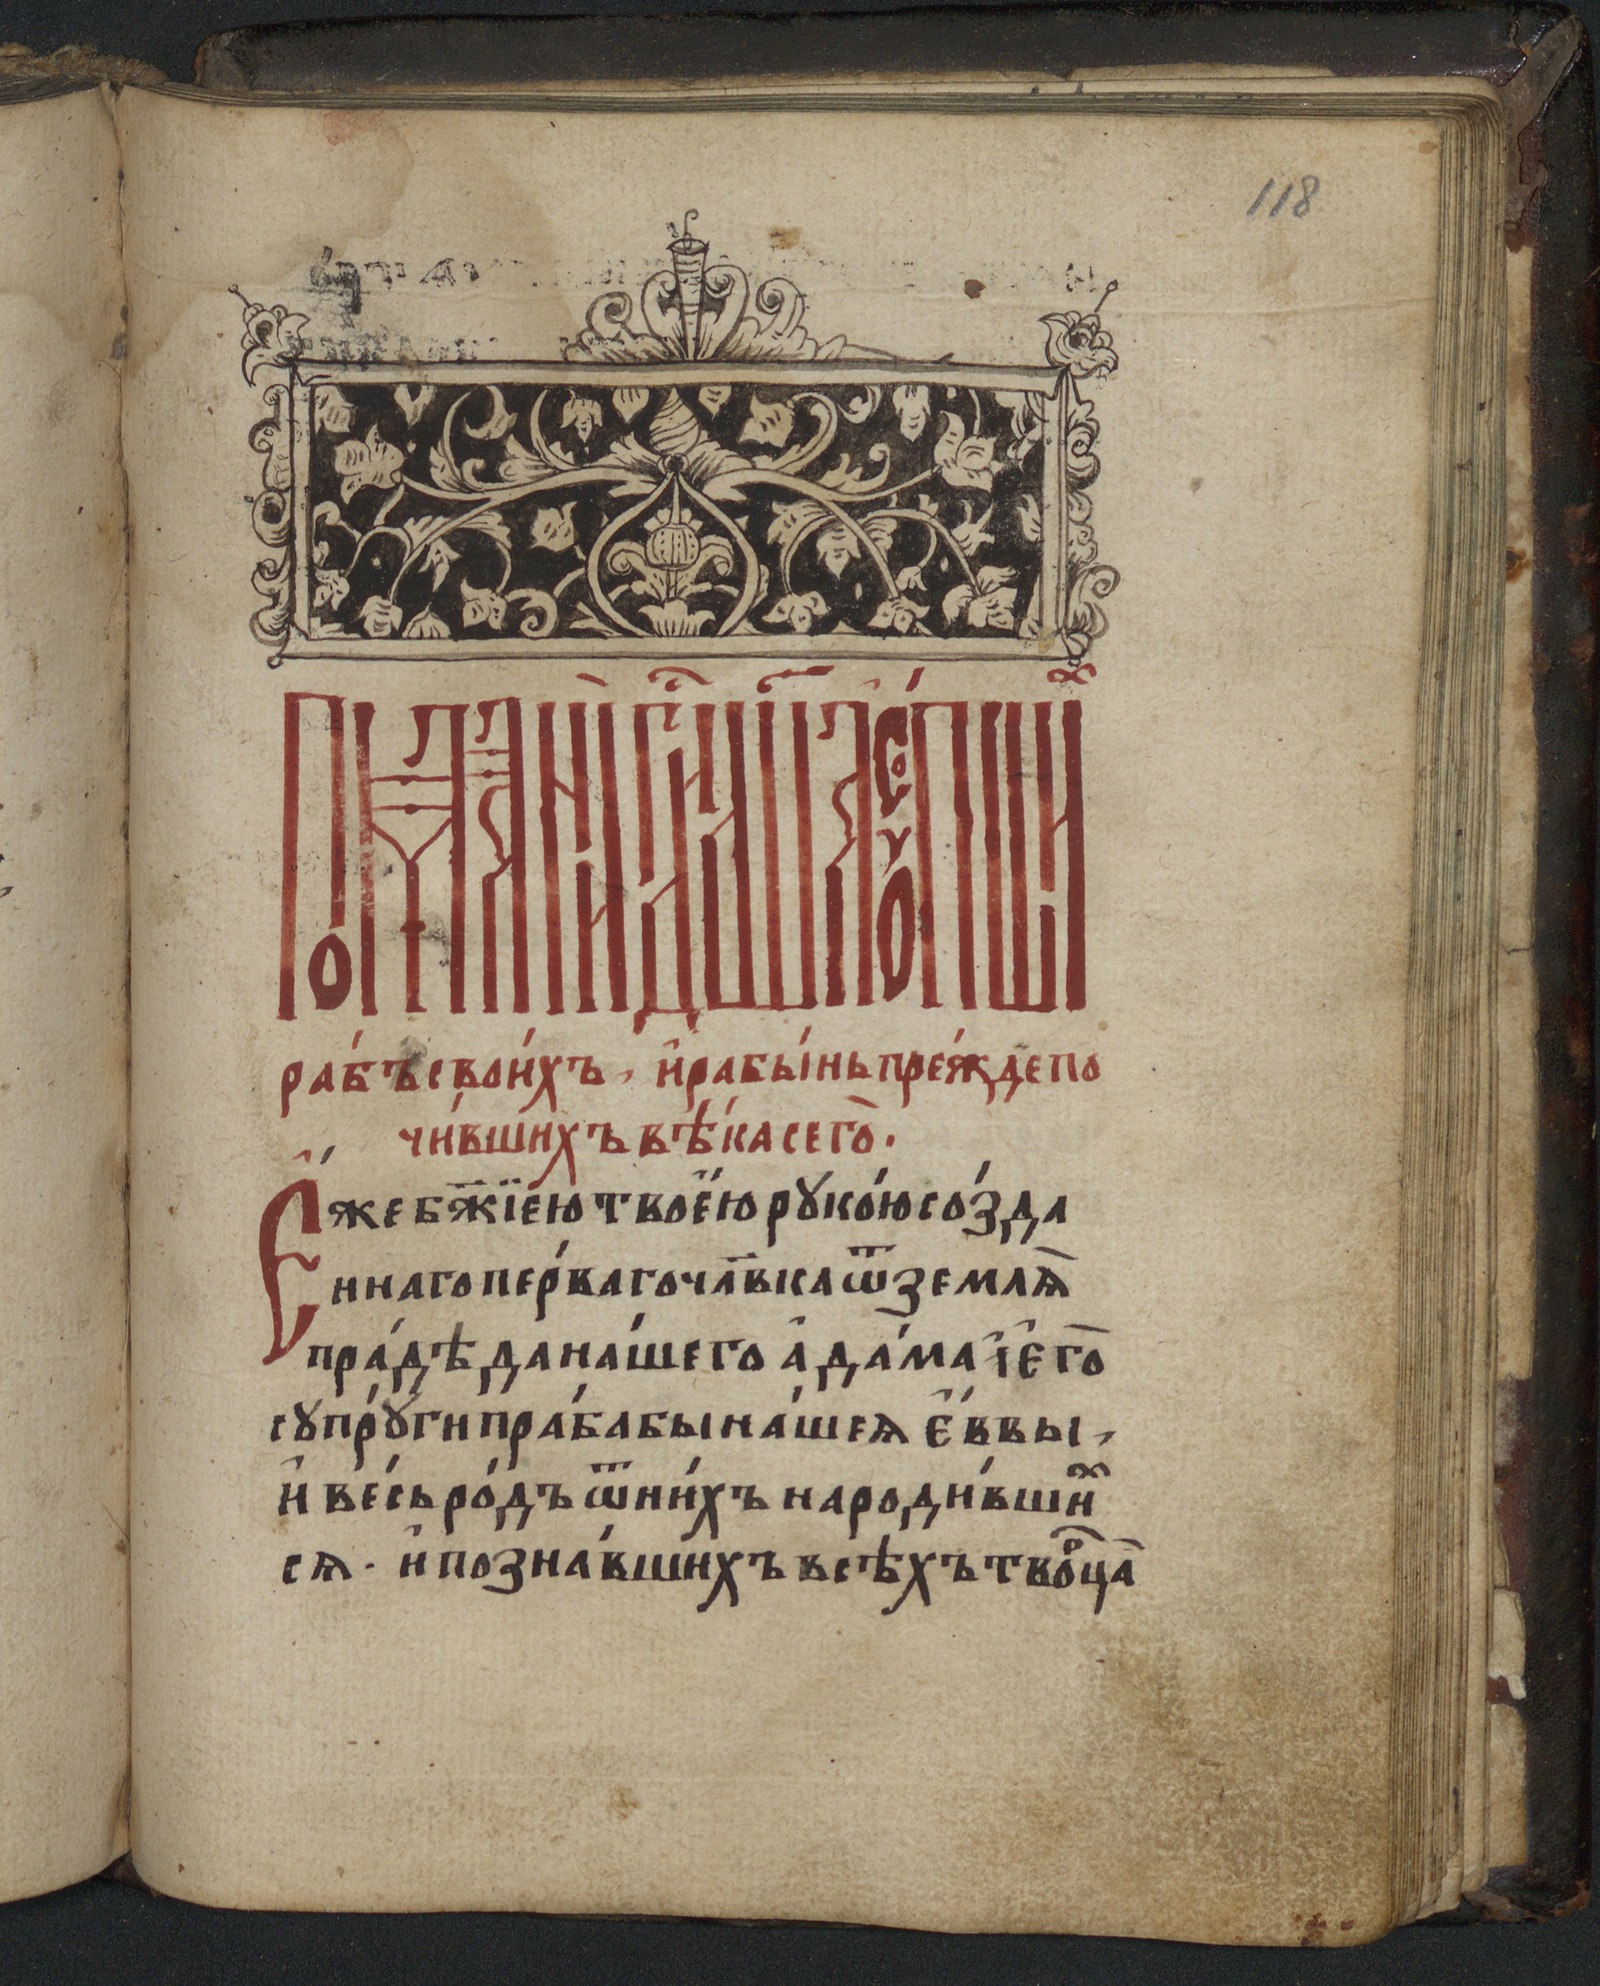 118
Помѧни гди дша ѹсопши
ра́бъ свои́хъ, и҆ рабы́нь пре́жде по
чи́вшихъ вѣ́ка сего̀.
Е҆́же бж҃їею твое́ю руко́ю со́зда
ннаго пе́рваго чл҃вка ѿ землѧ̀
пра́дѣда на́шего а҆да́ма і҆ є҆го̀
сꙋпрꙋ́ги праба́бы на́шеѧ є҆́ввы,
и҆ ве́сь ро́дъ ѿ ни́хъ народи́вшиⷯ
сѧ. и҆ позна́вшихъ всѣ́хъ творⷪ҇ца̀